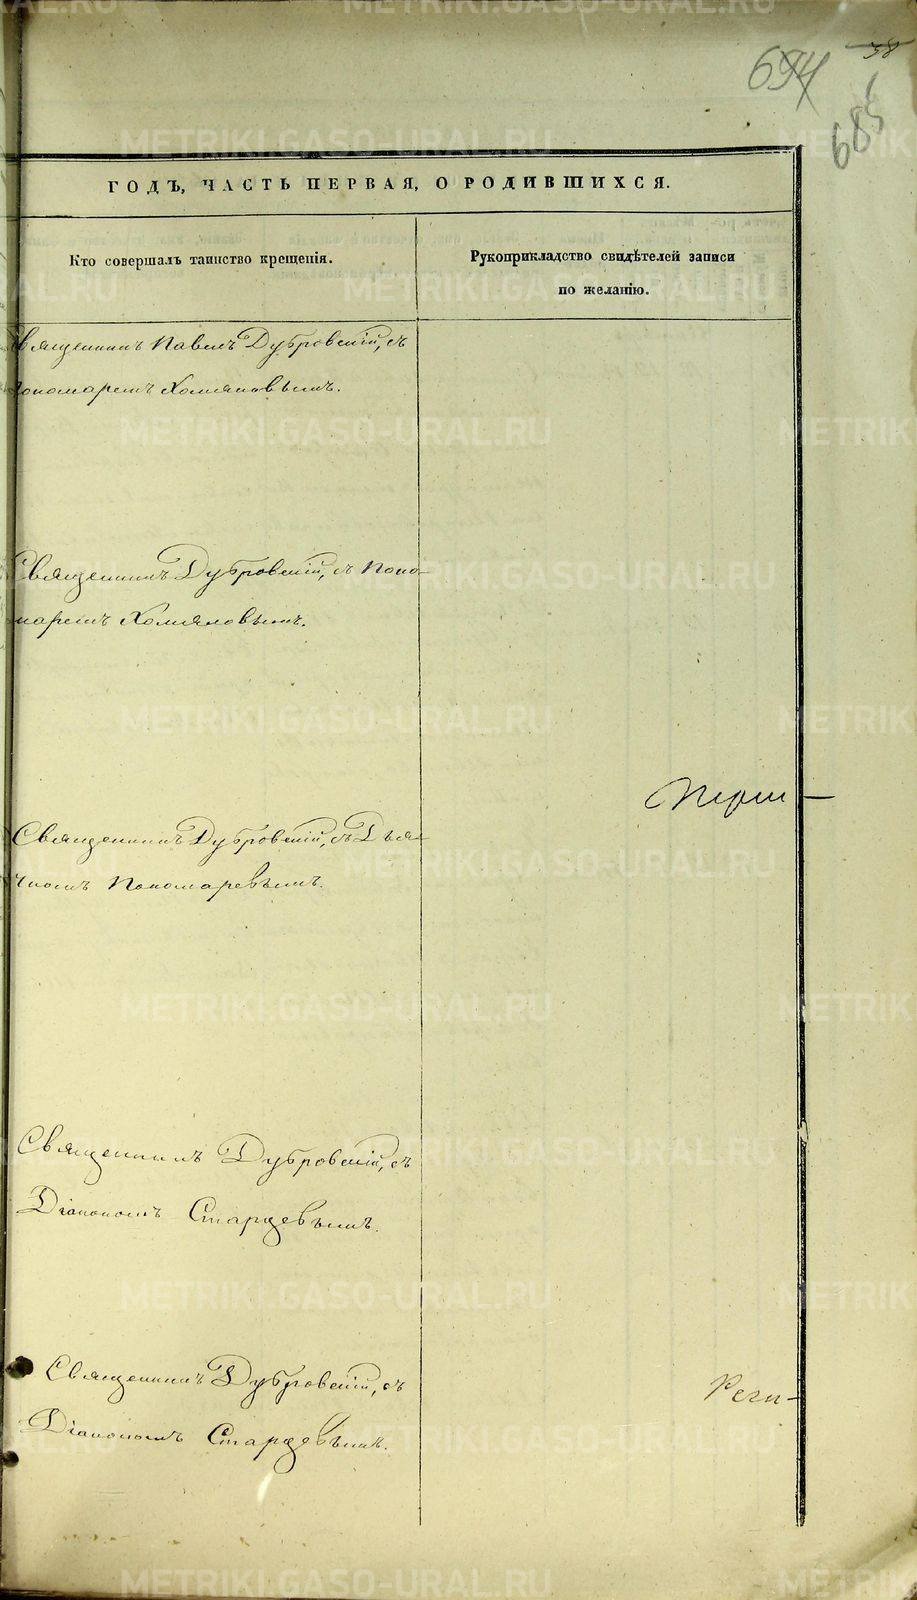 38
694
685
ГОДЪ, ЧАСТЬ ПЕРВАЯ, О РОДИВШИХСЯ.
Кто совершалъ таинство крещенія.
Рукоприкладство свидѣтелей записи
по желанію.
Священникъ Павелъ Дубровскій, съ
пономаремъ Хомяковымъ.
Священникъ Дубровскій, съ Поно-
маремъ Хомяковымъ.
Священникъ Дубровскій, съ Дья-
чкомъ Пономаревымъ.
Священникъ Дубровскій, съ
Діакономъ Старцевымъ.
Священникъ Дубровскій, съ
Діакономъ Старцевымъ.
METRIKI.GASO-URAL.RU